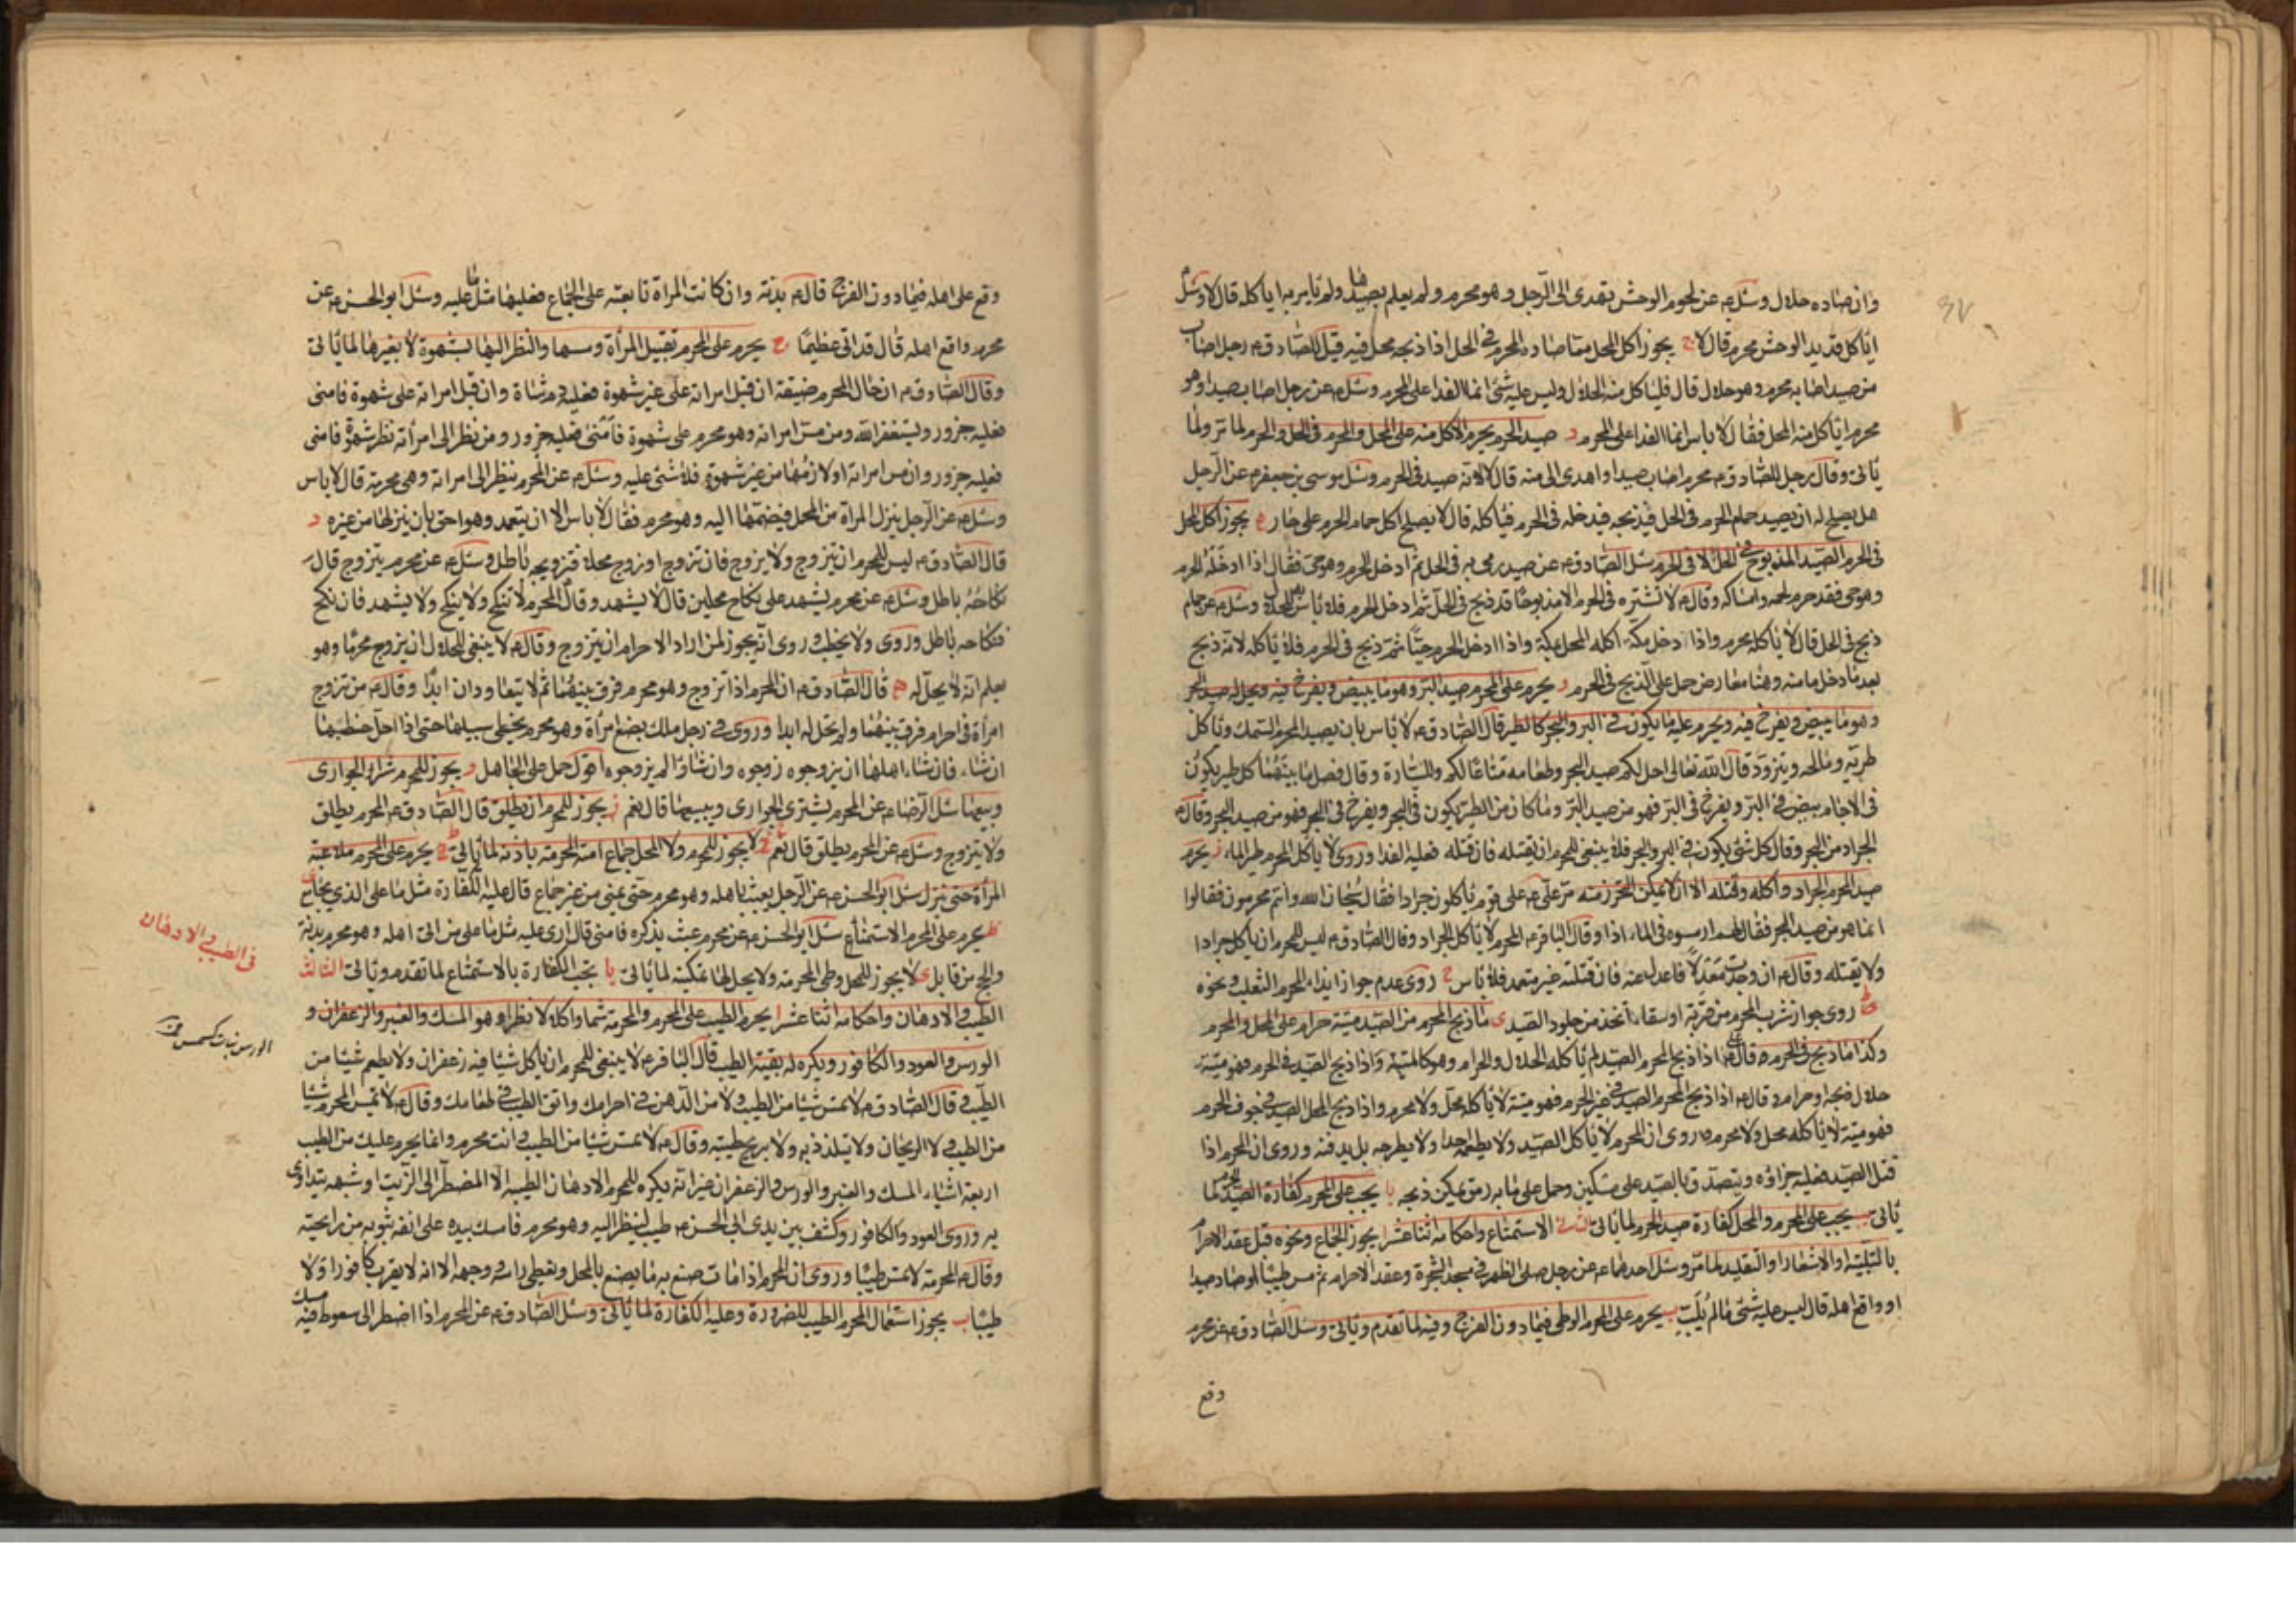 وان صاده حلال وسئل ع عن لحوم الوحش تهدى الى الرجل وهو محرم ولم يعلم بصيدها ولم يامر به اياكله قال لا وسئل
اياكل قديد الوحش محرم قال لا ج يجوز اكل المحل مما صاده المحرم فى الحل اذا ذبحه محل فيه قيل للصادق ع رجل اصاب
من صيد اصابه محرم وهو حلال قال فلياكل منه الحلال وليس عليه شئ انما الفدا على المحرم وسئل ع عن رجل اصاب صيدا وهو
محرم اياكل منه المحل فقال لا باس انما الفدا على المحرم د صيد الحرم يحرم الاكل منه على المحل والمحرم فى الحل والحرم لما مر ولما
ياتى وقال رجل للصادق ع محرم اصاب صيدا واهدى الى منه قال لا لانه صيد فى الحرم وسئل موسى بن جعفر ع عن الرجل
هل يصلح له ان يصيد حمام الحرم فى الحل فيذبحه فيدخله فى الحرم فياكله قال لا يصلح اكل حمام الحرم على حال ه يجوز اكل المحل
فى الحرم الصيد المذبوح فى الحل لا فى الحرم سئل الصادق ع عن صيد رمى به فى الحل ثم ادخل الحرم وهو حى فقال اذا ادخله الحرم
وهو حى فقد حرم لحمه وامساكه وقال ع لا تشتره فى الحرم الا مذبوحا قد ذبح فى الحل ثم ادخل الحرم فلا باس به للحلال وسئل ع عن حمام
ذبح فى الحل قال لا ياكله محرم واذا دخل مكة اكله المحل بمكة واذا ادخل الحرم حيا ثم ذبح فى الحرم فلا ياكله لانه ذبح
بعد ما دخل مامنه وهنا معارض حمل على الذبح فى الحرم و يحرم على المحرم صيد البر وهو ما يبيض ويفرخ فيه ويحل له صيد البحر
وهو ما يبيض ويفرخ فيه ويحرم عليه ما يكون فى البر والبحر كالطير قال الصادق ع لا باس بان يصيد المحرم السمك وياكل
طريه ومالحه ويتزود قال الله تعالى احل لكم صيد البحر وطعامه متاعا لكم وللسيارة وقال فصل ما بينهما كل طير يكون
فى الاجام يبيض فى البر ويفرخ فى البر فهو من صيد البر وما كان من الطير يكون فى البحر ويفرخ فى البحر فهو من صيد البحر وقال ع
الجراد من البحر وقال كل شئ يكون فى البر والبحر فلا ينبغى للمحرم ان يقتله فان قتله فعليه الفدا وروى لا ياكل المحرم طير الماء ز يحرم
صيد المحرم الجراد واكله وقتله الا ان لا يمكن التحرز منه مر على ع على قوم ياكلون جرادا فقال سبحان الله وانتم محرمون فقالوا
انما هو من صيد البحر فقال لهم ارمسوه فى الماء اذا وقال الباقر ع المحرم لا ياكل الجراد وقال الصادق ع ليس للمحرم ان ياكل جرادا
ولا يقتله وقال ع ان وجدت معدلا فاعدل عنه فان قتلته غير متعمد فلا باس ح روى عدم جواز ايذاء المحرم الثعلب ونحوه
ط روى جواز شرب المحرم من قربة او سقاء اتخذ من جلود الصيد ى ما ذبح المحرم من الصيد ميتة حرام على المحل والمحرم
وكذا ما ذبح فى الحرم قال على ع اذا ذبح المحرم الصيد لم ياكله الحلال والحرام وهو كالميتة واذا ذبح الصيد فى الحرم فهو ميتة
حلال ذبحه او حرام وقال ع اذا ذبح المحرم الصيد فى غير الحرم فهو ميتة لا ياكله محل ولا محرم واذا ذبح المحل الصيد فى جوف الحرم
فهو ميتة لا ياكله محل ولا محرم وروى ان المحرم لا ياكل الصيد ولا يطعمه احدا ولا يطرحه بل يدفنه وروى ان المحرم اذا
قتل الصيد فعليه جزاؤه ويتصدق بالصيد على مسكين وحمل على ما به رمق يمكن ذبحه يا يجب على المحرم كفارة الصيد لما
ياتى يب يجب على المحرم والمحل كفارة صيد الحرم لما ياتى الثانى الاستمتاع واحكامه اثنا عشر ا يجوز الجماع ونحوه قبل عقد الاحرام
بالتلبية او الاشعار او التقليد لما مر وسئل احدهما ع عن رجل صلى الظهر فى مسجد الشجرة وعقد الاحرام ثم مس طيبا او صاد صيدا
او واقع اهله قال ليس عليه شئ ما لم يلب ب يحرم على المحرم الوطى فيما دون الفرج وفيه لما تقدم وياتى وسئل الصادق ع عن محرم
وقع
وقع على اهله فيما دون الفرج قال ع بدنة وان كانت المراة تابعته على الجماع فعليها مثل ما عليه وسئل ابو الحسن ع عن
محرم واقع اهله قال قد اتى عظيما ج يحرم على المحرم تقبيل المرأة ومسها والنظر اليها بشهوة لا بغيرها لما ياتى
وقال الصادق ع ان حال المحرم ضيقة ان قبل امراته على غير شهوة فعليه دم شاة وان قبل امراته على شهوة فامنى
فعليه جزور وليستغفر الله ومن مس امراته وهو محرم على شهوة فامنى فعليه جزور ومن نظر الى امرأته نظر شهوة فامنى
فعليه جزور وان مس امراته او لازمها من غير شهوة فلا شئ عليه وسئل ع عن المحرم ينظر الى امراته وهى محرمة قال لا باس
وسئل ع عن الرجل ينزل المرأة من المحمل فيضمها اليه وهو محرم فقال لا باس الا ان يتعمد وهو احق بان ينزلها من غيره د
قال الصادق ع ليس للمحرم ان يتزوج ولا يزوج فان تزوج او زوج محلا فتزويجه باطل وسئل ع عن محرم يتزوج قال
نكاحه باطل وسئل ع عن محرم يشهد على نكاح محلين قال لا يشهد وقال المحرم لا ينكح ولا ينكح ولا يشهد فان نكح
فنكاحه باطل وروى ولا يخطب وروى انه يجوز لمن اراد الاحرام ان يتزوج وقال ع لا ينبغى للحلال ان يزوج محرما وهو
يعلم انه لا يحل له ه قال الصادق ع ان المحرم اذا تزوج وهو محرم فرق بينهما ثم لا يتعاودان ابدا وقال ع من تزوج
امرأة فى احرام فرق بينهما ولم تحل له ابدا وروى فى رجل ملك بضع امرأة وهو محرم يخلى سبيلها حتى اذا احل خطبها
ان شاء فان شاء اهلها ان يزوجوه زوجوه وان شاؤا لم يزوجوه اقول حمل على الجاهل و يجوز للمحرم شراء الجوارى
وبيعها سئل الرضا ع عن المحرم يشترى الجوارى ويبيعها قال نعم ز يجوز للمحرم ان يطلق قال الصادق ع المحرم يطلق
ولا يتزوج وسئل ع عن المحرم يطلق قال نعم ح لا يجوز للمحرم ولا للمحل جماع امته المحرمة باذنه لما ياتى ط يحرم على المحرم ملاعبة
المرأة حتى ينزل سئل ابو الحسن ع عن الرجل يعبث باهله وهو محرم حتى يمنى من غير جماع قال عليه الكفارة مثل ما على الذى يجامع
يحرم على المحرم الاستمناع سئل ابو الحسن ع عن محرم عبث بذكره فامنى قال ارى عليه مثل ما على من اتى اهله وهو محرم بدنة
والحج من قابل ى لا يجوز للمحل وطى المحرمة ولا يحل لها تمكينه لما ياتى يا تجب الكفارة بالاستمتاع لما تقدم وياتى الثالث
الطيب والادهان واحكامه اثنا عشر ا يحرم الطيب على المحرم والمحرمة شما واكلا لا نظرا وهو المسك والعنبر والزعفران و
الورس والعود والكافور ويكره له بقية الطيب قال الباقر ع لا ينبغى للمحرم ان ياكل شيئا فيه زعفران ولا يطعم شيئا من
الطيب وقال الصادق ع لا تمس شيئا من الطيب ولا من الدهن فى احرامك واتق الطيب فى طعامك وقال ع لا يمس المحرم شيئا
من الطيب ولا الريحان ولا يتلذذ به ولا بريح طيبة وقال ع لا تمس شيئا من الطيب وانت محرم وانما يحرم عليك من الطيب
اربعة اشياء المسك والعنبر والورس والزعفران غير انه يكره للمحرم الادهان الطيبة الا المضطر الى الزيت او شبهه يتداوى
به وروى العود والكافور وكشف بين يدى ابى الحسن ع طيب لينظر اليه وهو محرم فامسك بيده على انفه بثوبه من رايحته
وقال ع المحرمة لا تمس طيبا وروى ان المحرم اذا مات صنع به ما يصنع بالمحل ويغطى راسه ووجهه الا انه لا يقرب كافورا ولا
طيبا ب يجوز استعمال المحرم الطيب للضرورة وعليه الكفارة لما ياتى وسئل الصادق ع عن المحرم اذا اضطر الى سعوط فيه مسك
فى الطيب والادهان
الورس نبات كسمسم